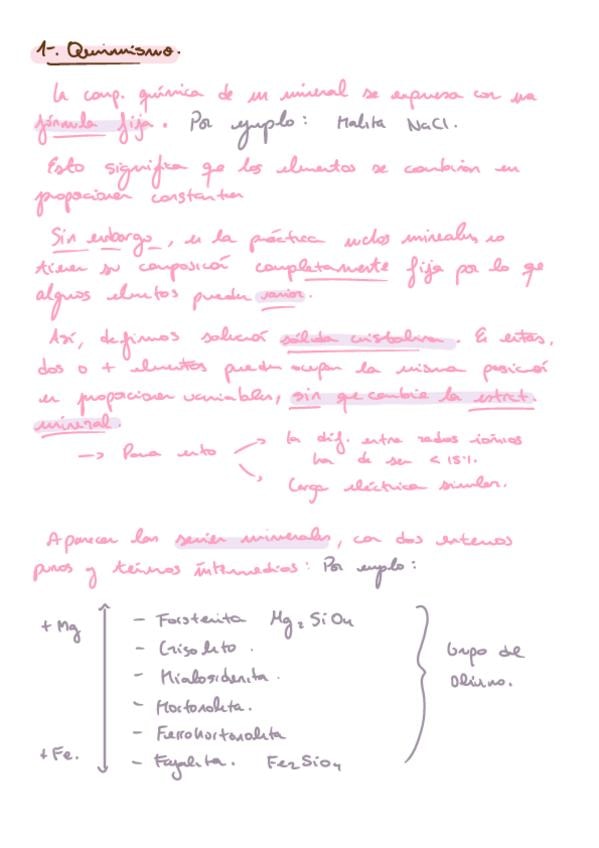 1-. Quimismo.
La comp. química de un mineral se expresa con una
fórmula fija. Por ejemplo: Halita NaCl.
Esto significa que los elementos se combinan en
proporciones constantes
Sin embargo, en la práctica muchos minerales no
tienen su composición completamente fija por lo que
algunos elementos pueden variar.
Así, definimos solución sólida cristalina. En estas,
dos o + elementos pueden ocupar la misma posición
en proporciones variables, sin que cambie la estruct.
mineral.
-> Para esto
la dif. entre radios iónicos
ha de ser < 15%.
Carga eléctrica similar.
Aparecen las series minerales, con dos extremos
puros y términos intermedios: Por ejemplo:
+ Mg
- Forsterita Mg2SiO4
- Crisolito.
- Hialosiderita.
- Hortonolita.
- Ferrohortonolita
+ Fe.
- Fayalita. Fe2SiO4
Grupo del
Olivino.